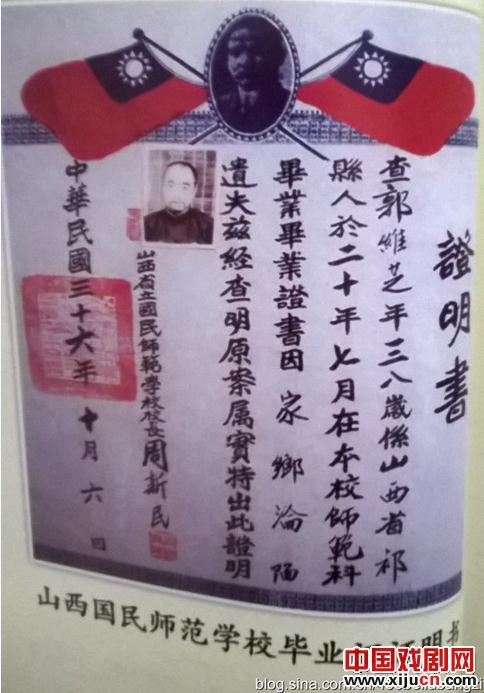 證明書
查郭維芝年三八歲係山西省祁
縣人於二十年七月在本校師範科
畢業畢業證書因家鄉淪陷
遺失茲經查明原案属實特出此證明
山西省立國民師範學校校長周新民
中華民國三十六年十月六日
山西国民师范学校毕业证证明书
中国戏剧网
www.xijucn.com
blog.sina.com.cn